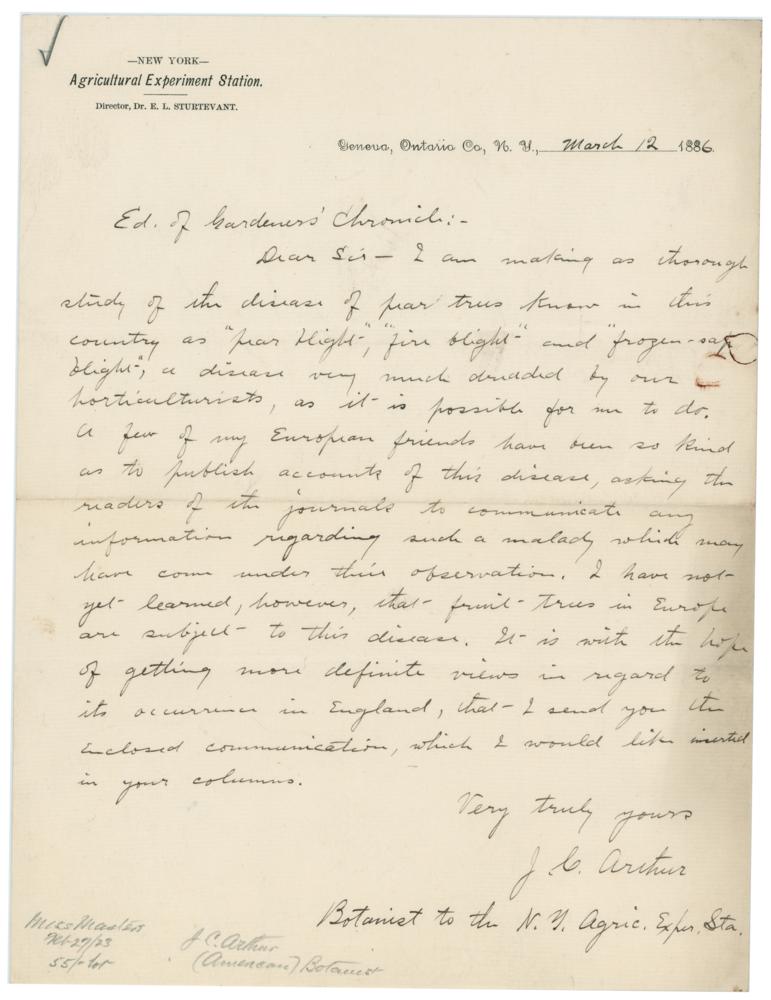 —NEW YORK—
Agricultural Experiment Station.
Director, Dr. E. L. STURTEVANT.
Geneva, Ontario Co., N. Y., March 12 1886.
Ed. of Gardeners' Chronicle:-
Dear Sir — I am making as thorough
study of the disease of pear trees know in this
country as "pear blight", "fire blight" and "frozen-sap
blight", a disease very much dreaded by our
horticulturists, as it is possible for me to do.
A few of my European friends have been so kind
as to publish accounts of this disease, asking the
readers of the journals to communicate any
information regarding such a malady which may
have come under their observation. I have not
yet learned, however, that fruit trees in Europe
are subject to this disease. It is with the hope
of getting more definite views in regard to
its occurrence in England, that I send you the
enclosed communication, which I would like inserted
in your columns.
Very truly yours
J. C. Arthur
Botanist to the N. Y. Agric. Exper. Sta.
Miss Masters
Feb 27/23
55/- lot
J C. Arthur
(American) Botanist